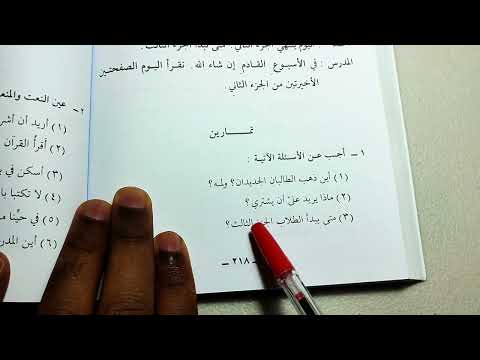 اليوم ينتهي الجزء الثاني. متى نبدأ الجزء الثالث.
المدرس : في الأسبوع القادم إن شاء الله. نقرأ اليوم الصفحتين
الأخيرتين من الجزء الثاني.
تمارين
١ – أجب عن الأسئلة الآتية :
(١) أين ذهب الطالبان الجديدان؟ ولمه؟
(٢) ماذا يريد عليّ أن يشتري؟
(٣) متى يبدأ الطلاب الجزء الثالث؟
– ٢١٨ –
٢ – عين النعت والمنع
(١) أريد أن أشر
(٢) أقرأ القرآن
(٣) أسكن في
(٤) لا تكتبا
(٥) في حيِّنا
(٦) أين المدر